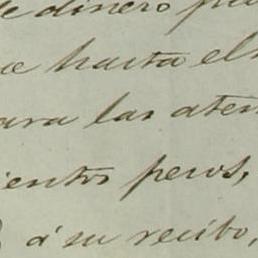 de dinero
hasta el
para las aten
ientos pesos,
á su recibo,